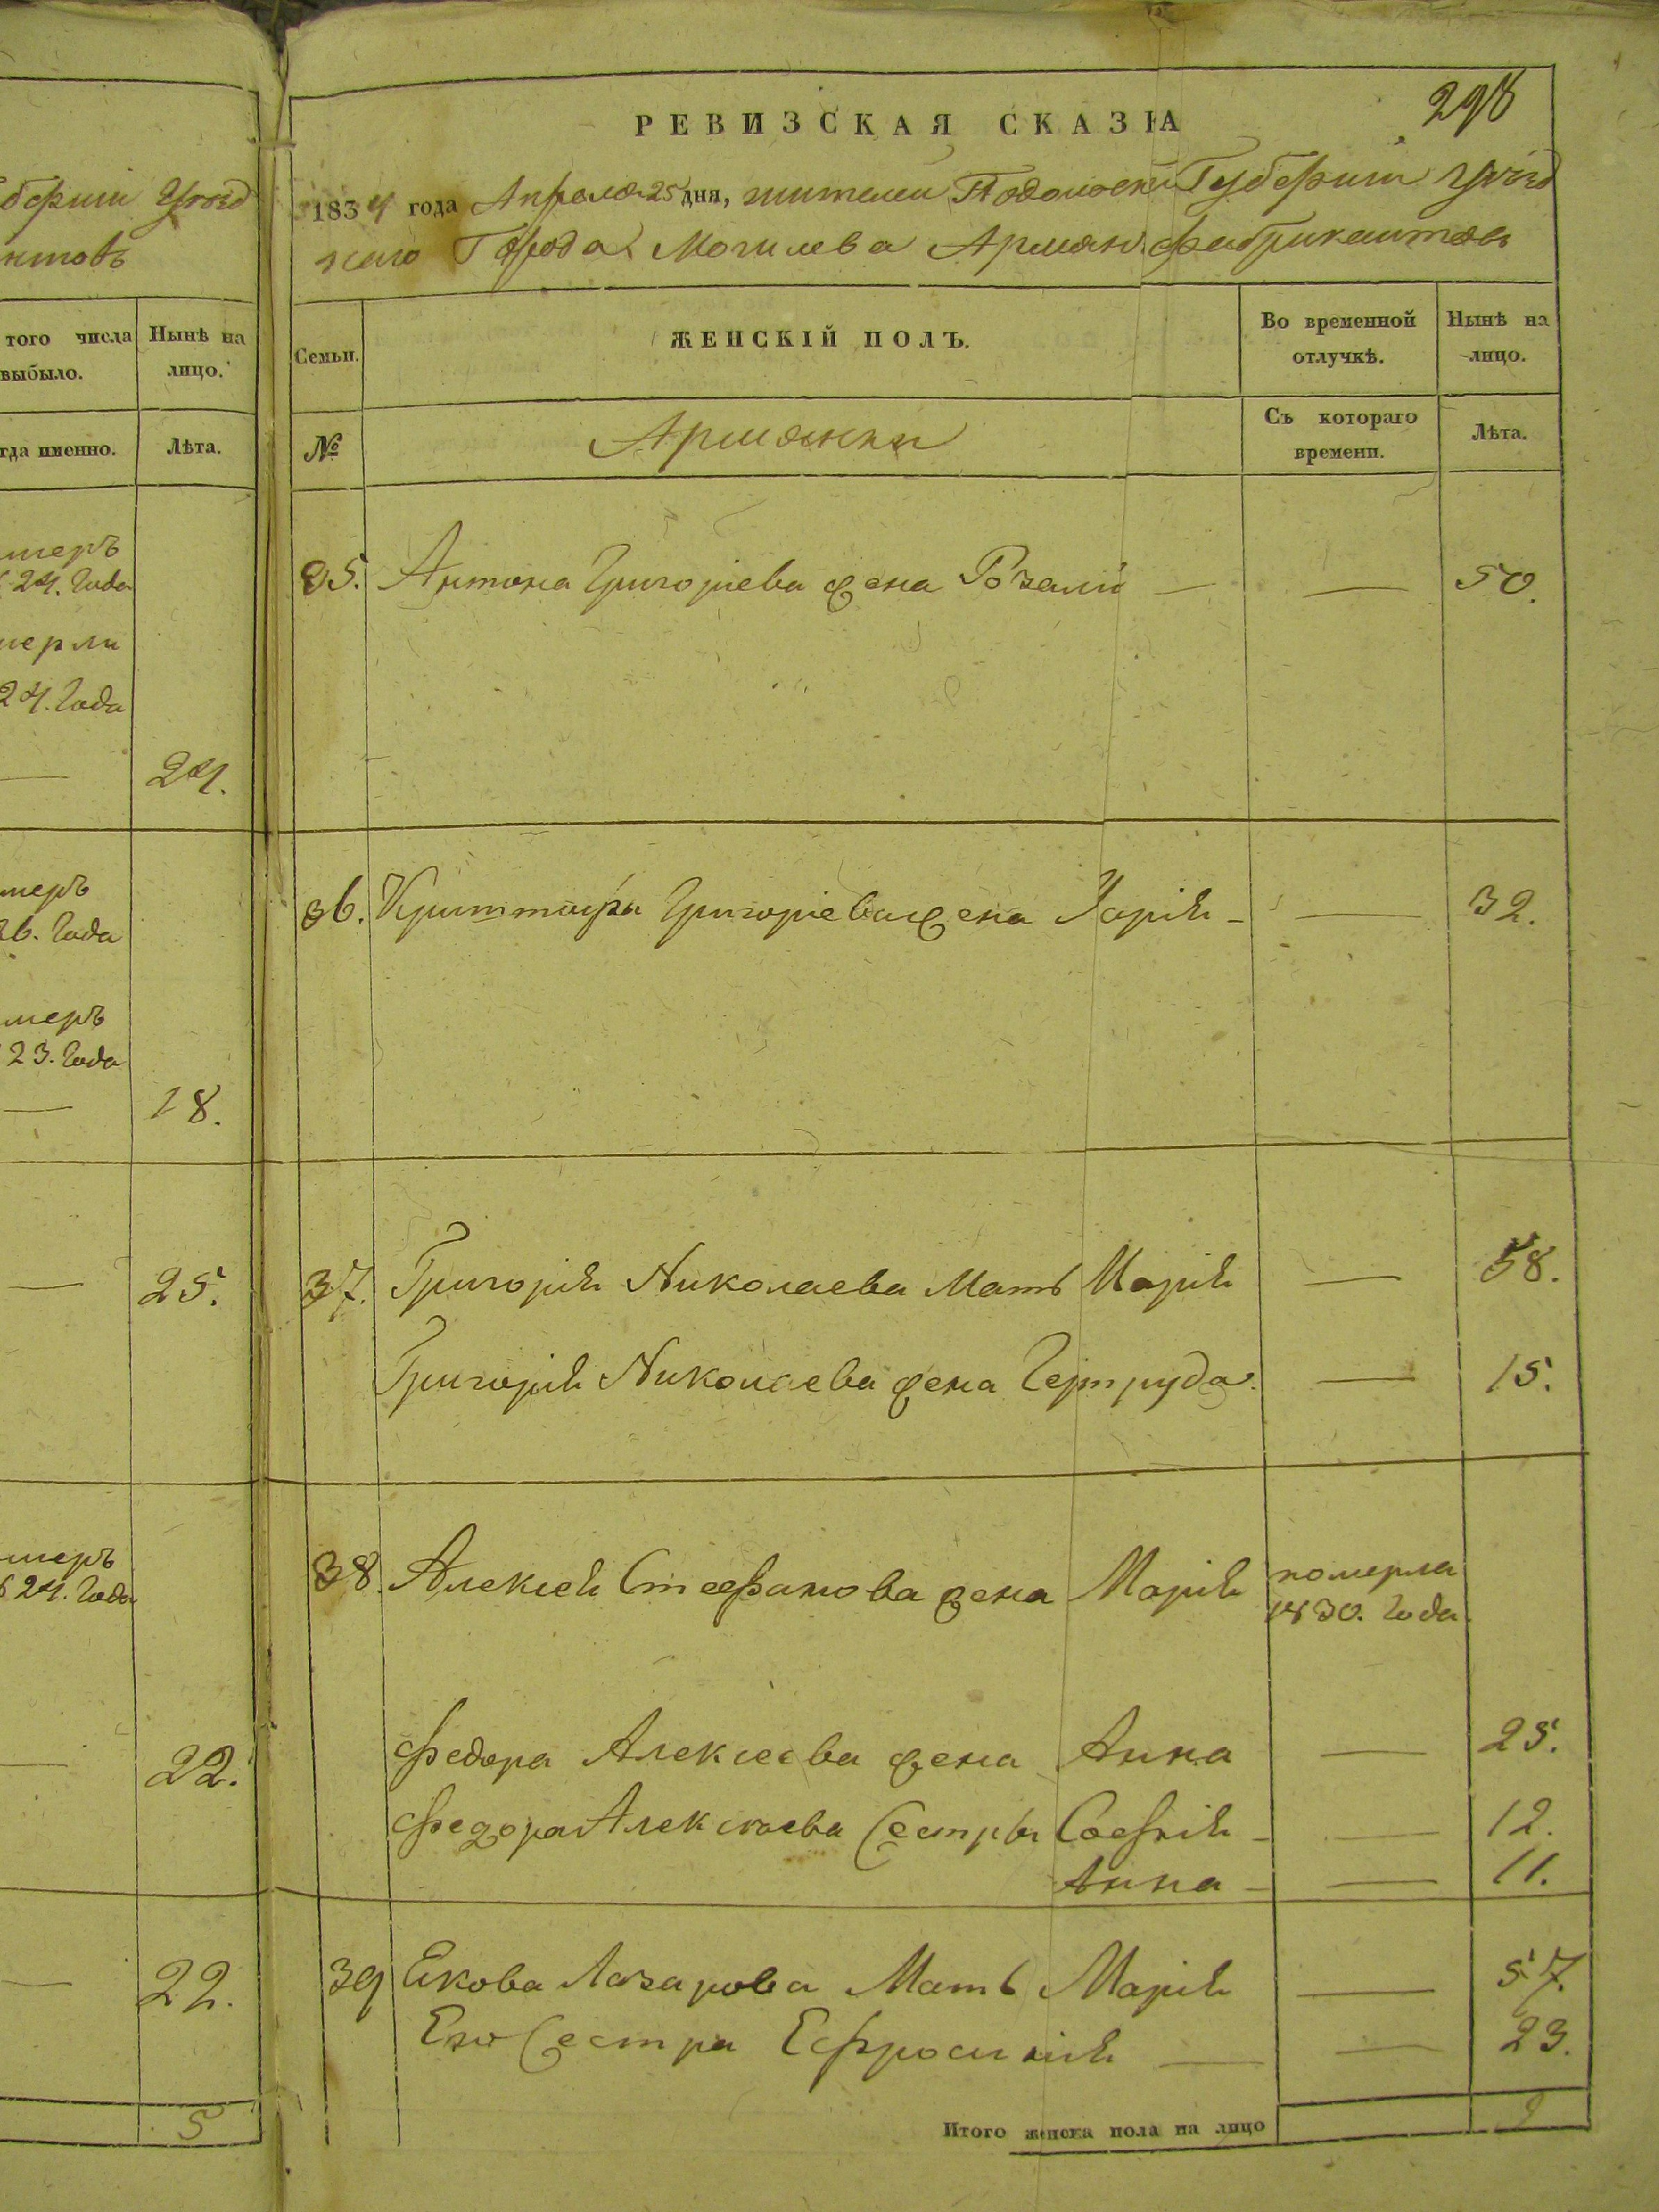 298
РЕВИЗСКАЯ СКАЗКА
1834 года Апреля 25 дня, жителей Подольской Губернии Уезд
наго Города Могилева Армян. фабрикантовъ
беріии Уезд
нтовъ
того числа выбыло.
Нынѣ на лицо.
гда именно.
Лѣта.
Семьи.
ЖЕНСКІЙ ПОЛЪ.
Во временной отлучкѣ.
Нынѣ на лицо.
№
Армянки
Съ котораго времени.
Лѣта.
мерѣ
24. Года
мерли
24. Года
— 24.
35. Антона Григоріева жена Розалія — — 50.
мерѣ
26. Года
мерѣ
23. Года
— 18.
36. Григоріева жена Марія — — 32.
— 25.
37. Григорія Николаева Мать Марія — 58.
Григорія Николаева жена Гертруда. — 15.
мерѣ
24. Года
— 22.
38. Алексея Стефанова жена Марія померла
1830. Года
Федора Алексеева жена Анна — 25.
Федора Алексеева Сестры Софія — — 12.
Анна — — 11.
— 22.
39 Якова Лазарова Мать Марія — 57.
Его Сестра Ефросинія — — 23.
5
Итого женска пола на лицо 9